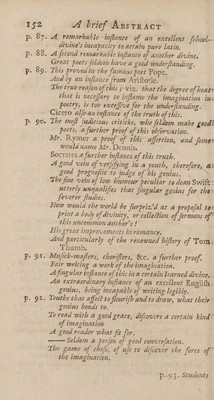 152 A brief ABSTRACT
p. 87. A remarkable instance of an excellent school-
divine's incapacity to attain pure latin.
p. 88. A second remarkable instance of another divine.
Great poets seldom have a good understanding.
p. 89. This proved in the famous poet Pope.
And by an instance from Aristotle.
The true reason of this; viz. that the degree of heat
that is necessary to inflame the imagination in
poetry, is too excessive for the understanding.
Cicero also an instance of the truth of this.
p. 90. The most judicious criticks, who seldom make good
poets, a further proof of this observation.
Mr. Rymer a proof of this assertion, and some
would name Mr. Dennis.
Socrates a further instance of this truth.
A good vein of versifying in a youth, therefore, a
good prognostic to judge of his genius.
The fine vein of low humour peculiar to dean Swift
utterly unqualifies that singular genius for the
severer studies.
How would the world be surpriz'd at a proposal to
print a body of divinity, or collection of sermons of
this uncommon author's!
His great improvements in romance.
And particularly of the renowned history of Tom
Thumb.
p. 91. Musick-masters, choristers, &c. a further proof.
Fair writing a work of the imagination.
A singular instance of this in a certain learned divine.
An extraordinary instance of an excellent English
genius, being incapable of writing legibly.
p. 92. Youths that affect to flourish and to draw, what their
genius bends to.
To read with a good grace, discovers a certain kind
of imagination
A good reader what fit for.
—— Seldom a person of good conversation.
The game of chess, of use to discover the force of
the imagination.
p. 93. Students